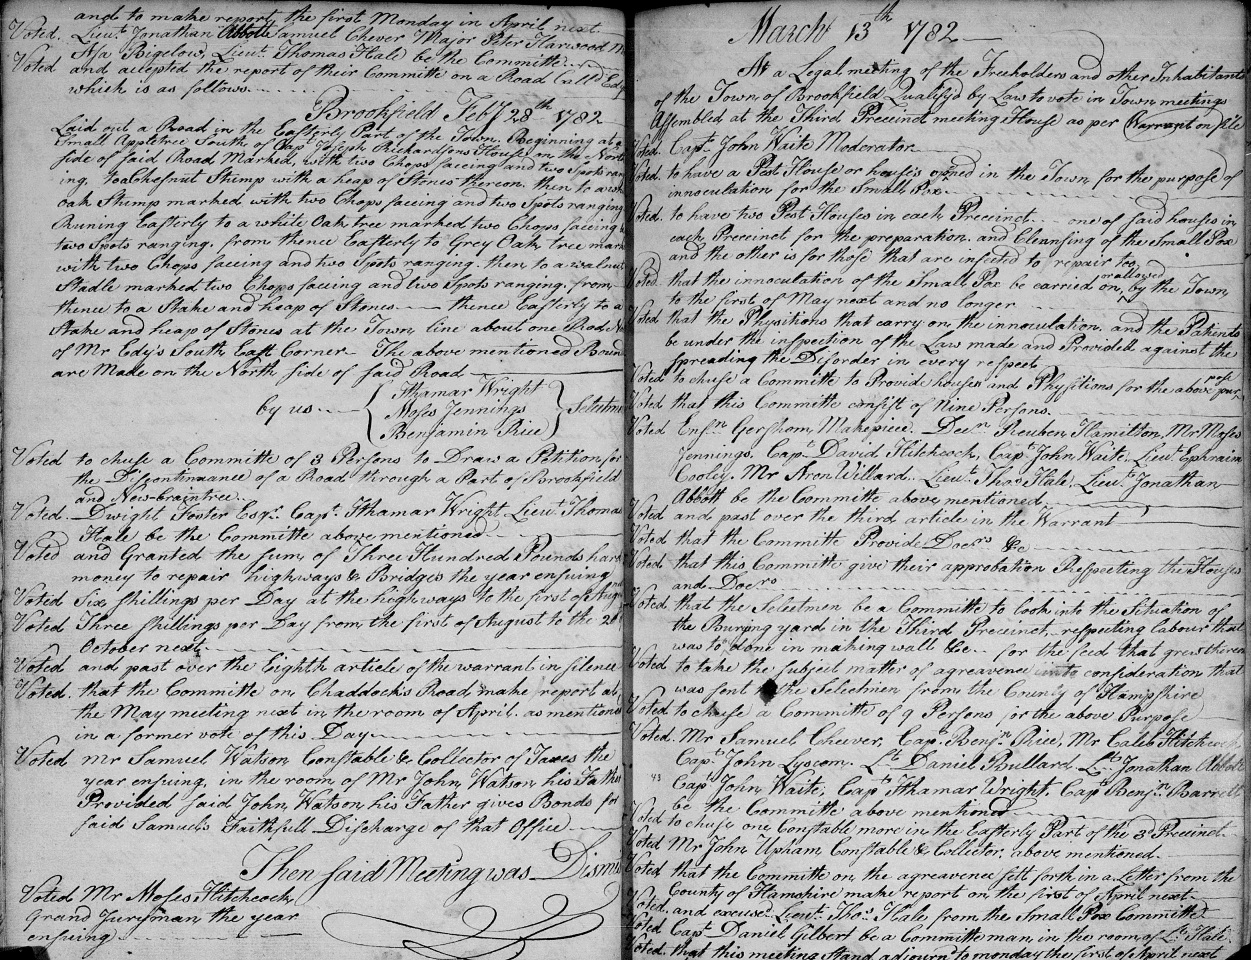 and to make report the first Monday in April next
Voted. Lieut. Jonathan Abbott Samuel Chever Major Peter Harwood
Asa Bigelow, Lieut. Thomas Hale be the Committe
Voted and accepted the report of their Committe on a Road Call'd
which is as follows
Brookfield Feby 28th 1782
Laid out a Road in the Easterly Part of the Town, Beginning at a
Small Appletree South of Cap. Joseph Richardsons House on the North
side of said Road Marked, with two Chops faceing and two Spots rang
ing, to a Chesnut Stump with a heap of Stones thereon. then to a
oak Stump marked with two Chops faceing and two Spots ranging
Runing Easterly to a white Oak tree marked two Chops faceing
two Spots ranging, from thence Easterly to Grey Oak tree mark
with two Chops faceing and two spots ranging. then to a walnut
Stadle marked two Chops faceing and two Spots ranging. from
thence to a Stake and heap of Stones thence Easterly to a
Stake and heap of Stones at the Town line about one Rod
of Mr Edy's South East Corner The above mentioned Boun
are Made on the North side of said Road
by us Ithamar Wright
Moses Jennings
Benjamin Rice
Selectmen
Voted to chuse a Committe of 3 Persons to Draw a Petition for
the Discontinuance of a Road through a Part of Brookfield
and New-braintree
Voted. Dwight Foster Esqr. Capt. Ithamar Wright Lieut. Thomas
Hale be the Committe above mentioned
Voted and Granted the sum of Three Hundred Pounds hard
money to repair highways & Bridges the year ensuing
Voted Six shillings per Day at the highways to the first of
Voted Three shillings per Day from the first of August to the 20
October next
Voted and past over the Eighth article of the warrant in silence
Voted. that the Committe on Chaddocks Road make report at
the May meeting next in the room of April. as mentioned
in a former vote of this Day
Voted mr Samuel Watson Constable & Collector of Taxes the
year ensuing, in the room of Mr John Watson his Father
Provided said John Watson his Father gives Bonds for
said Samuels Faithfull Discharge of that Office
Then said Meeting was Dismis
Voted Mr Moses Hitchcock
Grand Jureyman the year
ensuing
March 13th 1782
At a Legal meeting of the Freeholders and other Inhabitants
of the Town of Brookfield, Qualify'd by Law to vote in Town meetings
Assembled at the Third Precinct meeting House as per Warrant on file
Voted. Capt. John Waite Moderator
Voted. to have a Pest House or houses opned in the Town for the purpose of
innoculation for the Small Pox
Voted. to have two Pest Houses in each Precinct one of said houses in
each Precinct for the preparation and Clennsing of the Small Pox
and the other is for those that are infected to repair too
Voted that the innoculation of the Small Pox be carried on, or allowed by the Town
to the first of May next and no longer
Voted that the Physitions that carry on the innoculation, and the Patients
be under the inspection of the Law made and Provided against the
spreading the Disorder in every respect
Voted to chuse a Committe to Provide houses and Physitions for the above pur
pose
Voted that this Committe consist of Nine Persons.
Voted Ensn Gershom Makepiece, Decn Reuben Hamilton, Mr Moses
Jennings, Capt. David Hitchcock, Capt John Waite. Lieut. Ephraim
Cooley, Mr Aron Willard. Lieut. Thos Hale, Lieut. Jonathan
Abbott be the Committe above mentioned
Voted and past over the third article in the Warrant
Voted that the Committe Provide Docrs &c
Voted that this Committe give their approbation Respecting the Houses
and Docrs
Voted. that the Selectmen be a Committe to look into the Situation of
the Buring yard in the Third Precinct, respecting labour that
was to done in making wall &c for the feed that grew thereon
Voted to take the subject matter of agreavence into consideration that
was sent to the Selectmen from the County of Hampshire
Voted to chuse a Committe of 9 Persons for the above Purpose
Voted. Mr Samuel Cheever, Capt. Benjn Rice, Mr Caleb Hitchcock,
Capt. John Lyscom. Lt. Daniel Bullard. Lt. Jonathan Abbott
Capt John Waite, Capt Ithamar Wright, Capt Benjn Barrett
be the Committe above mentioned
Voted to chuse one Constable more in the Easterly Part of the 3d Precinct
Voted Mr John Upham Constable & Collector, above mentioned
Voted that the Committe on the agreavence sett forth in a Letter from the
County of Hamshire make report on the first of April next
Voted. and excuse Lieut. Thos. Hale from the Small Pox Committe
Voted Capt. Daniel Gilbert be a Committe man in the room of Lt. Hale
Voted. that this meeting stand adjourn to monday the first of April next